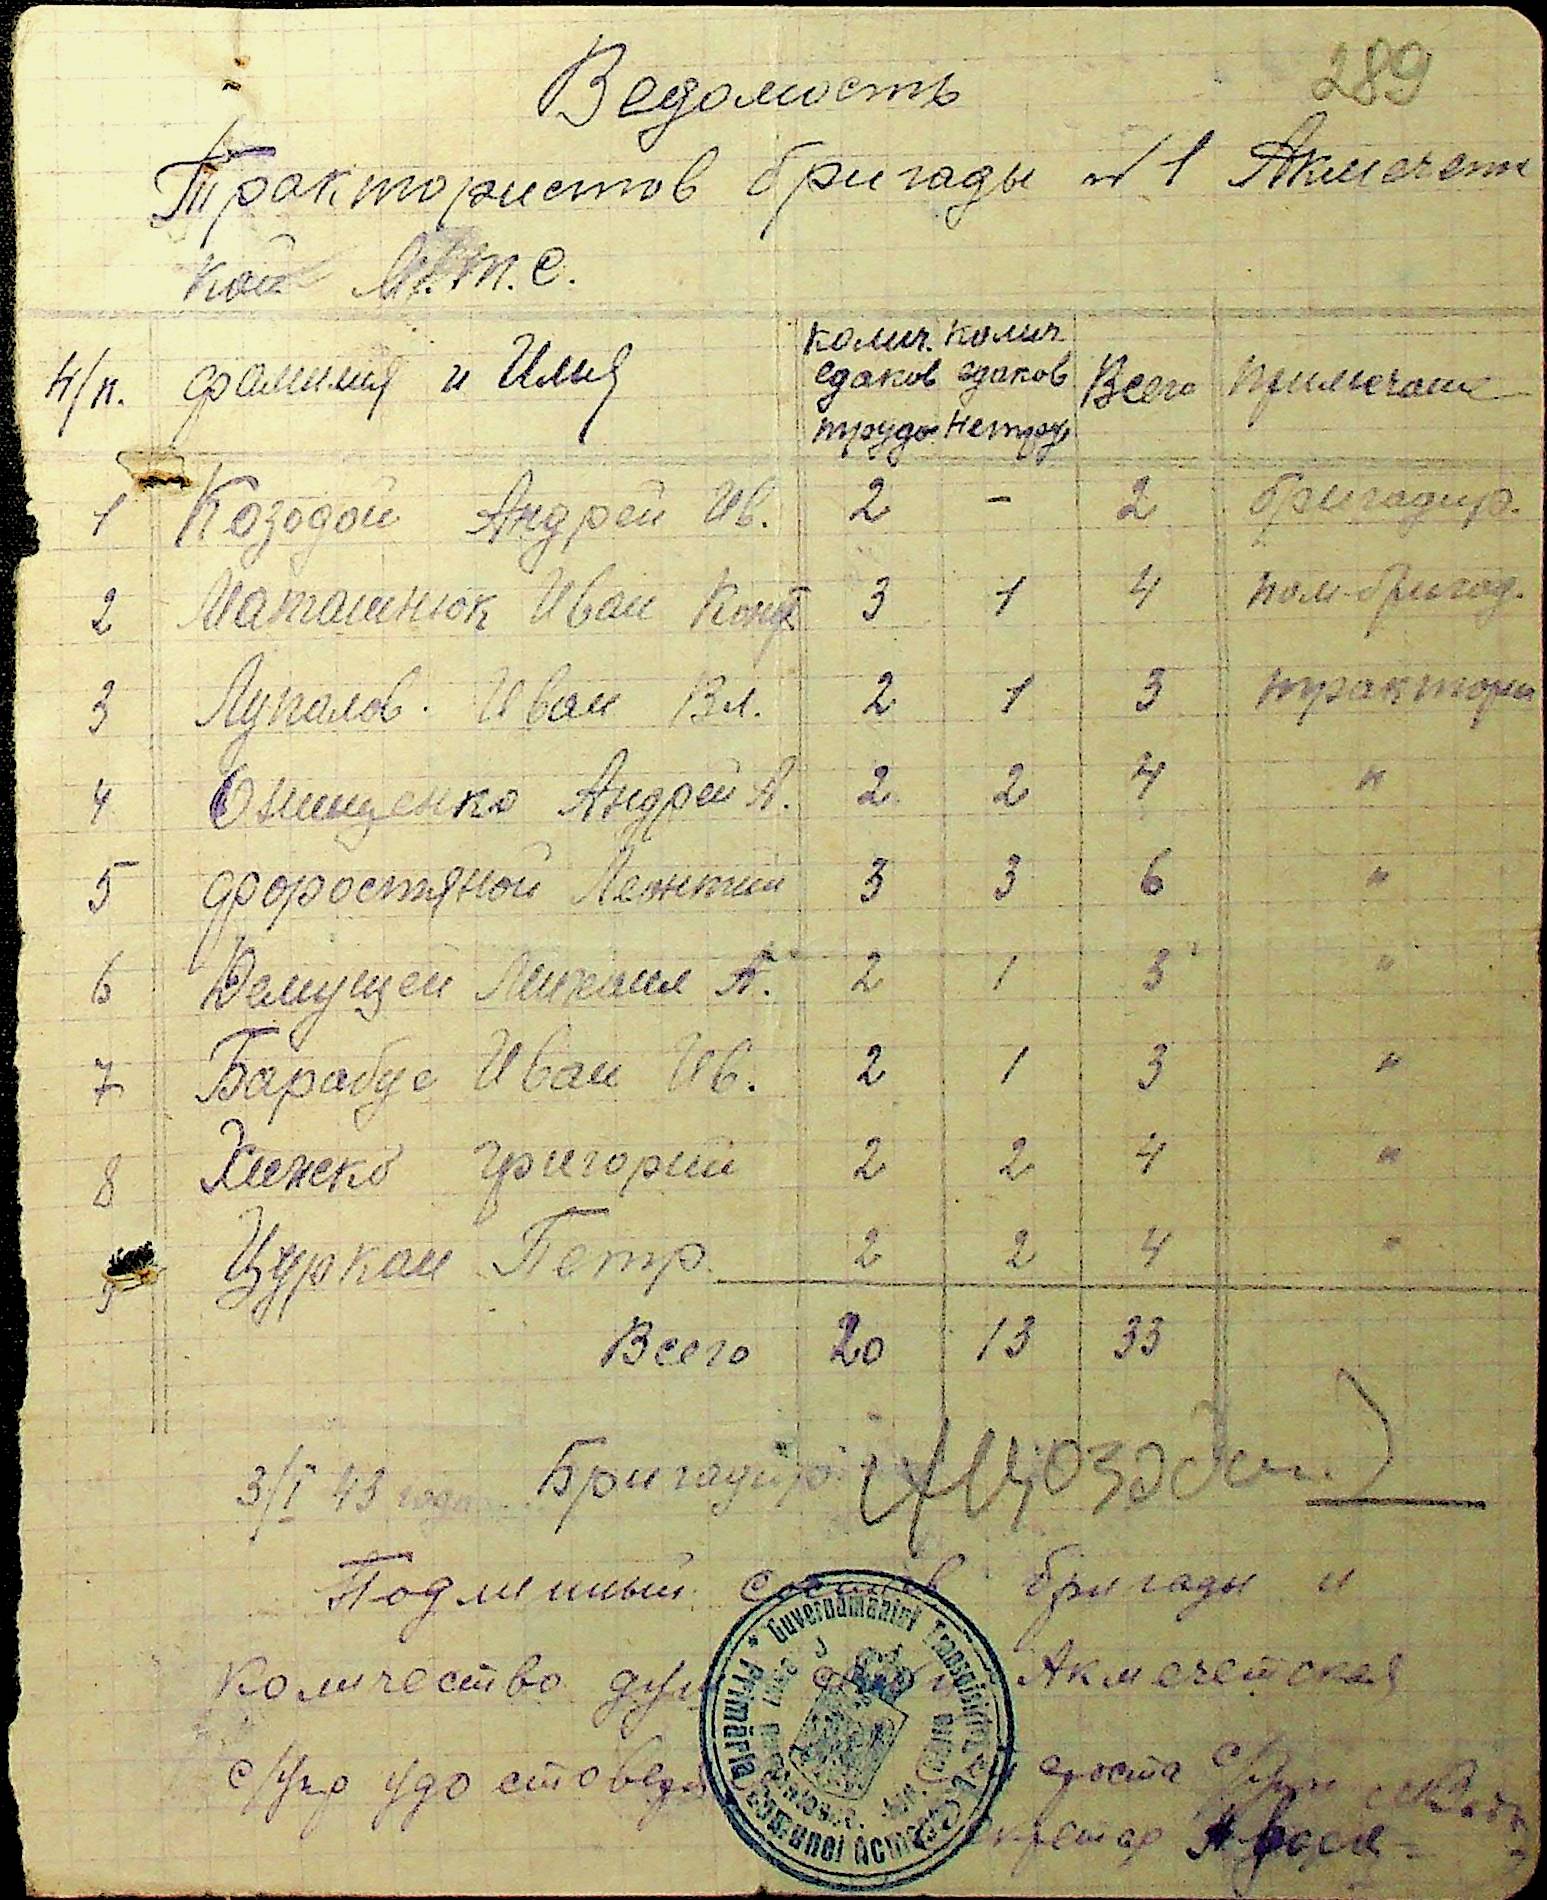 289
Ведомость
Трактористов бригады №1 Акмечетс
кой М.Т.С.
Н/п. фамилия и Имя Колич. едаков трудо. Колич. едаков нетруд Всего Примечание
1 Козодой Андрей Ив. 2 - 2 бригадир.
2 Маташнюк Иван Конд 3 1 4 пом-бригад.
3 Лупалов. Иван Вл. 2 1 3 трактори
4 Онищенко Андрей А. 2 2 4 "
5 Форостяной Леонтий 3 3 6 "
6 Демущей Михаил А. 2 1 3 "
7 Барабуе Иван Ив. 2 1 3 "
8 Хинско Григорий 2 2 4 "
9 Цуркан Петр. 2 2 4 "
Всего 20 13 33
3/I 43 года Бригадир:
Подлинный состав бригады и
Количество душ семьи Акмечетская
с/упр удостоверя староста с/упр
секретар
* Guvernământul Transnistriei * Primăria Comunei Acmecet